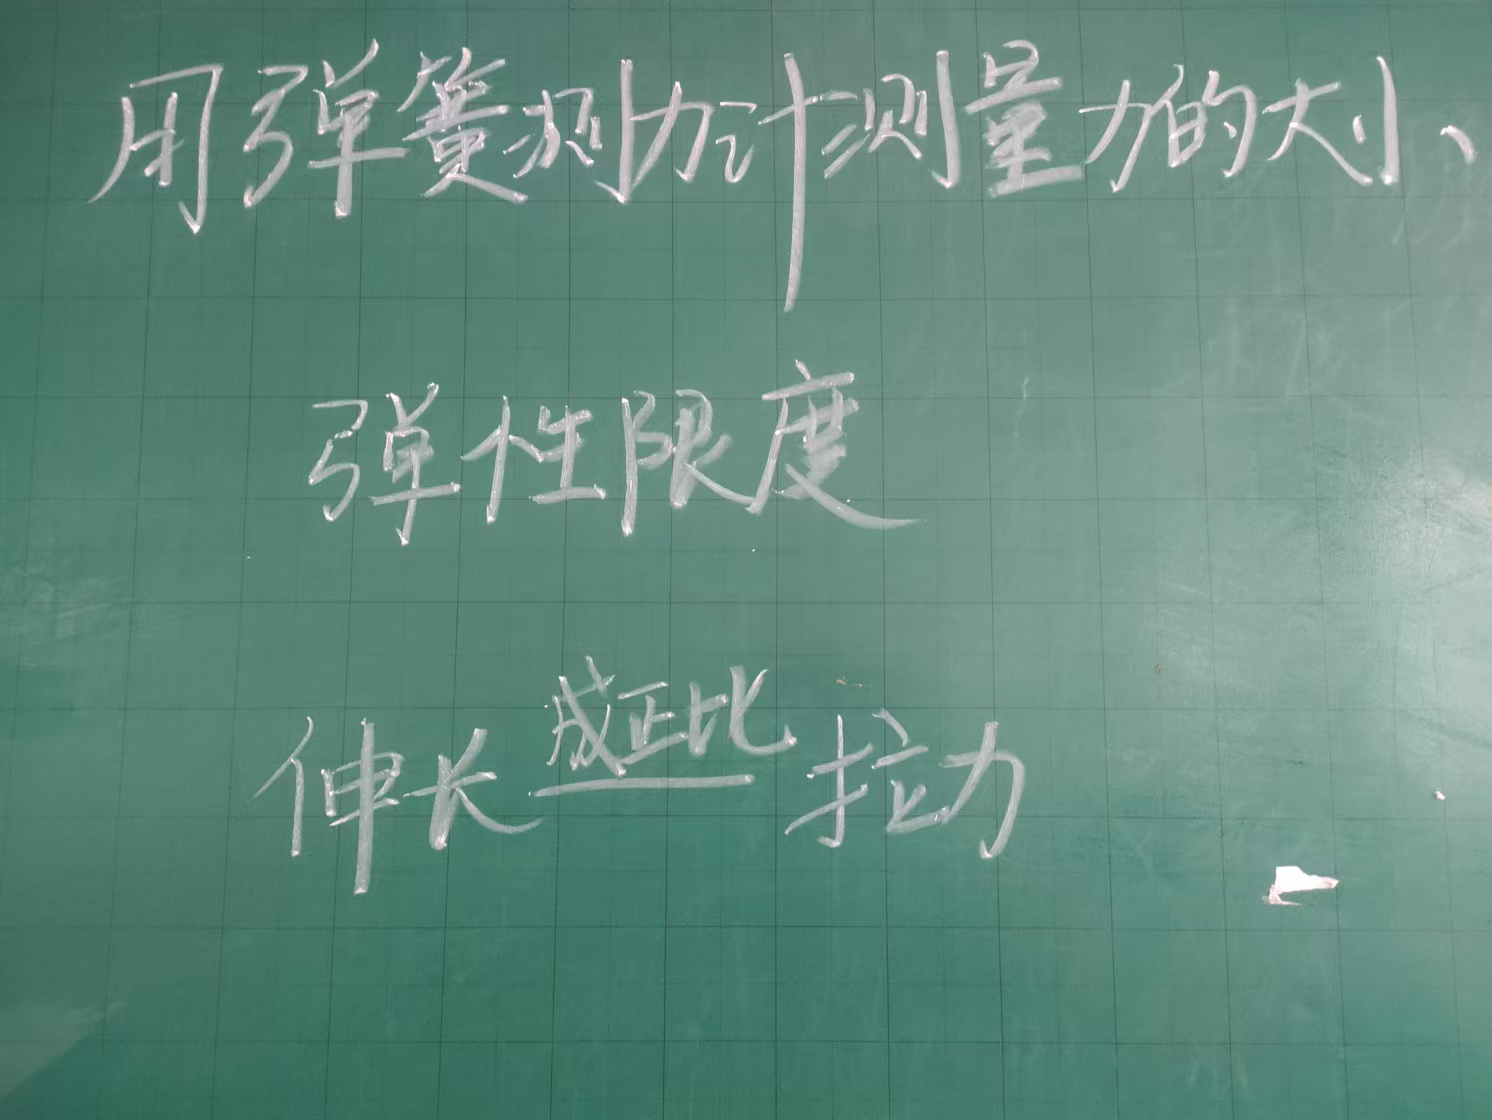 用弹簧测力计测量力的大小、
弹性限度
成正比
伸长 拉力